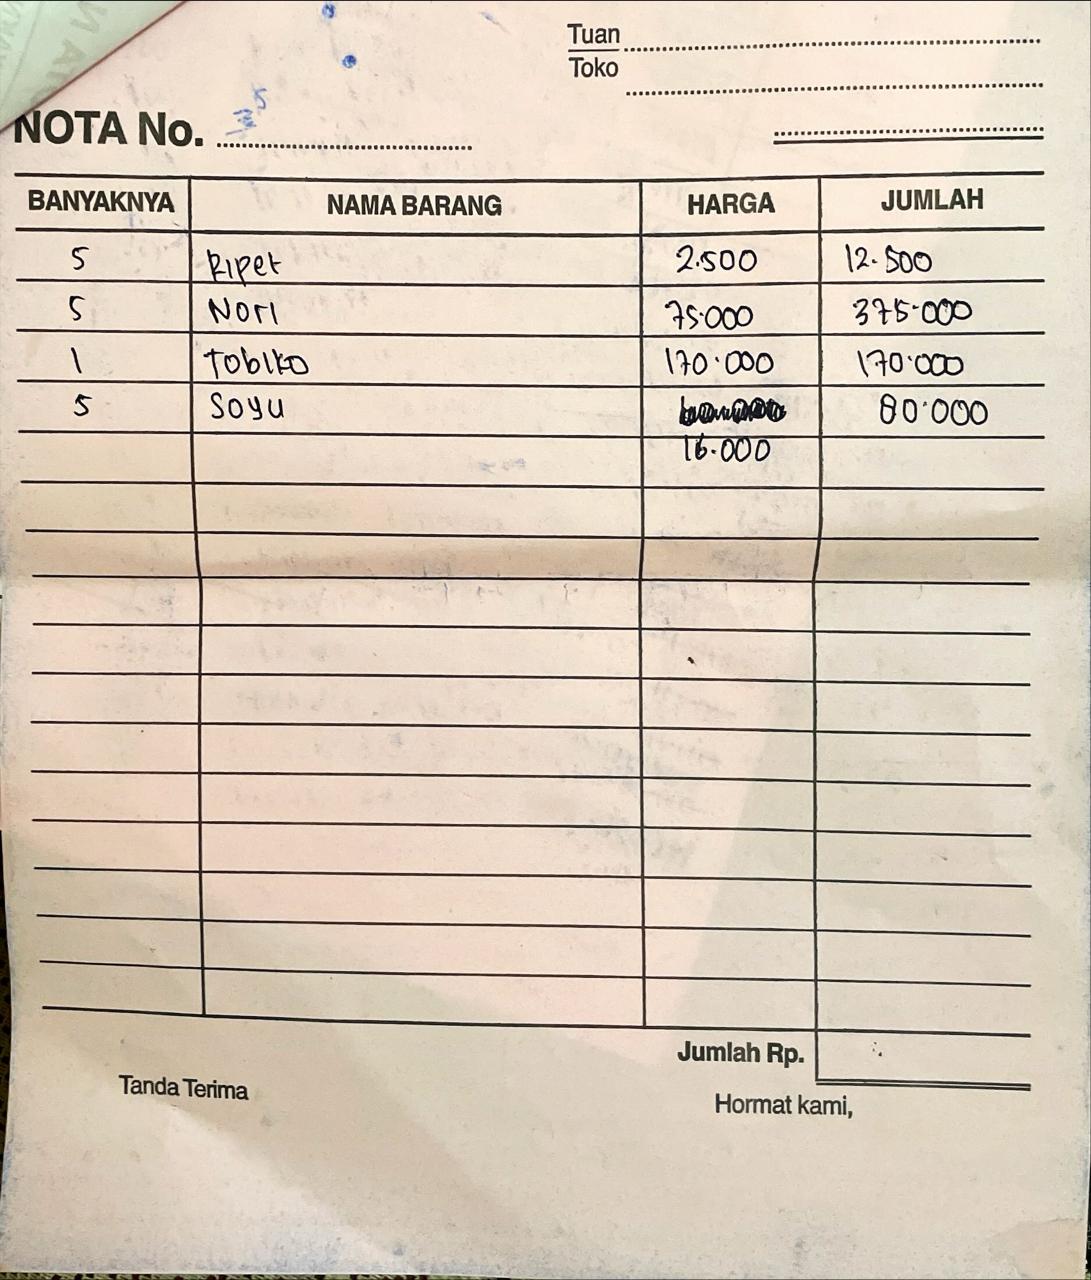 Tuan
Toko
NOTA No.
BANYAKNYA NAMA BARANG HARGA JUMLAH
5 Ripet 2.500 12.500
5 Nori 75.000 375.000
1 Tobiko 170.000 170.000
5 Soyu 80.000
16.000
Jumlah Rp.
Tanda Terima
Hormat kami,